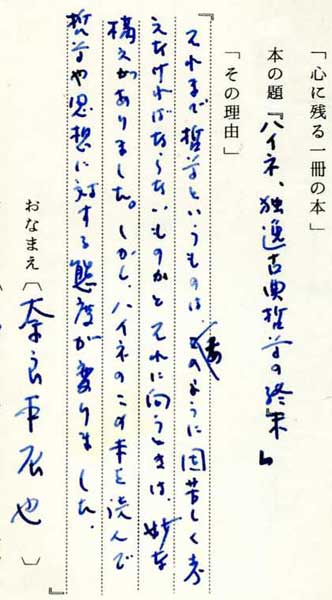 「心に残る一冊の本」
本の題『ハイネ、独逸古典哲学の終末』
「その理由」
『それまで哲学というものは、あのように固苦しく考
えなければならないものかとそれに向うときは、妙な
構えがありました。しかし、ハイネのこの本を読んで
哲学や思想に対する態度が変りました。
おなまえ〔奈良本辰也〕